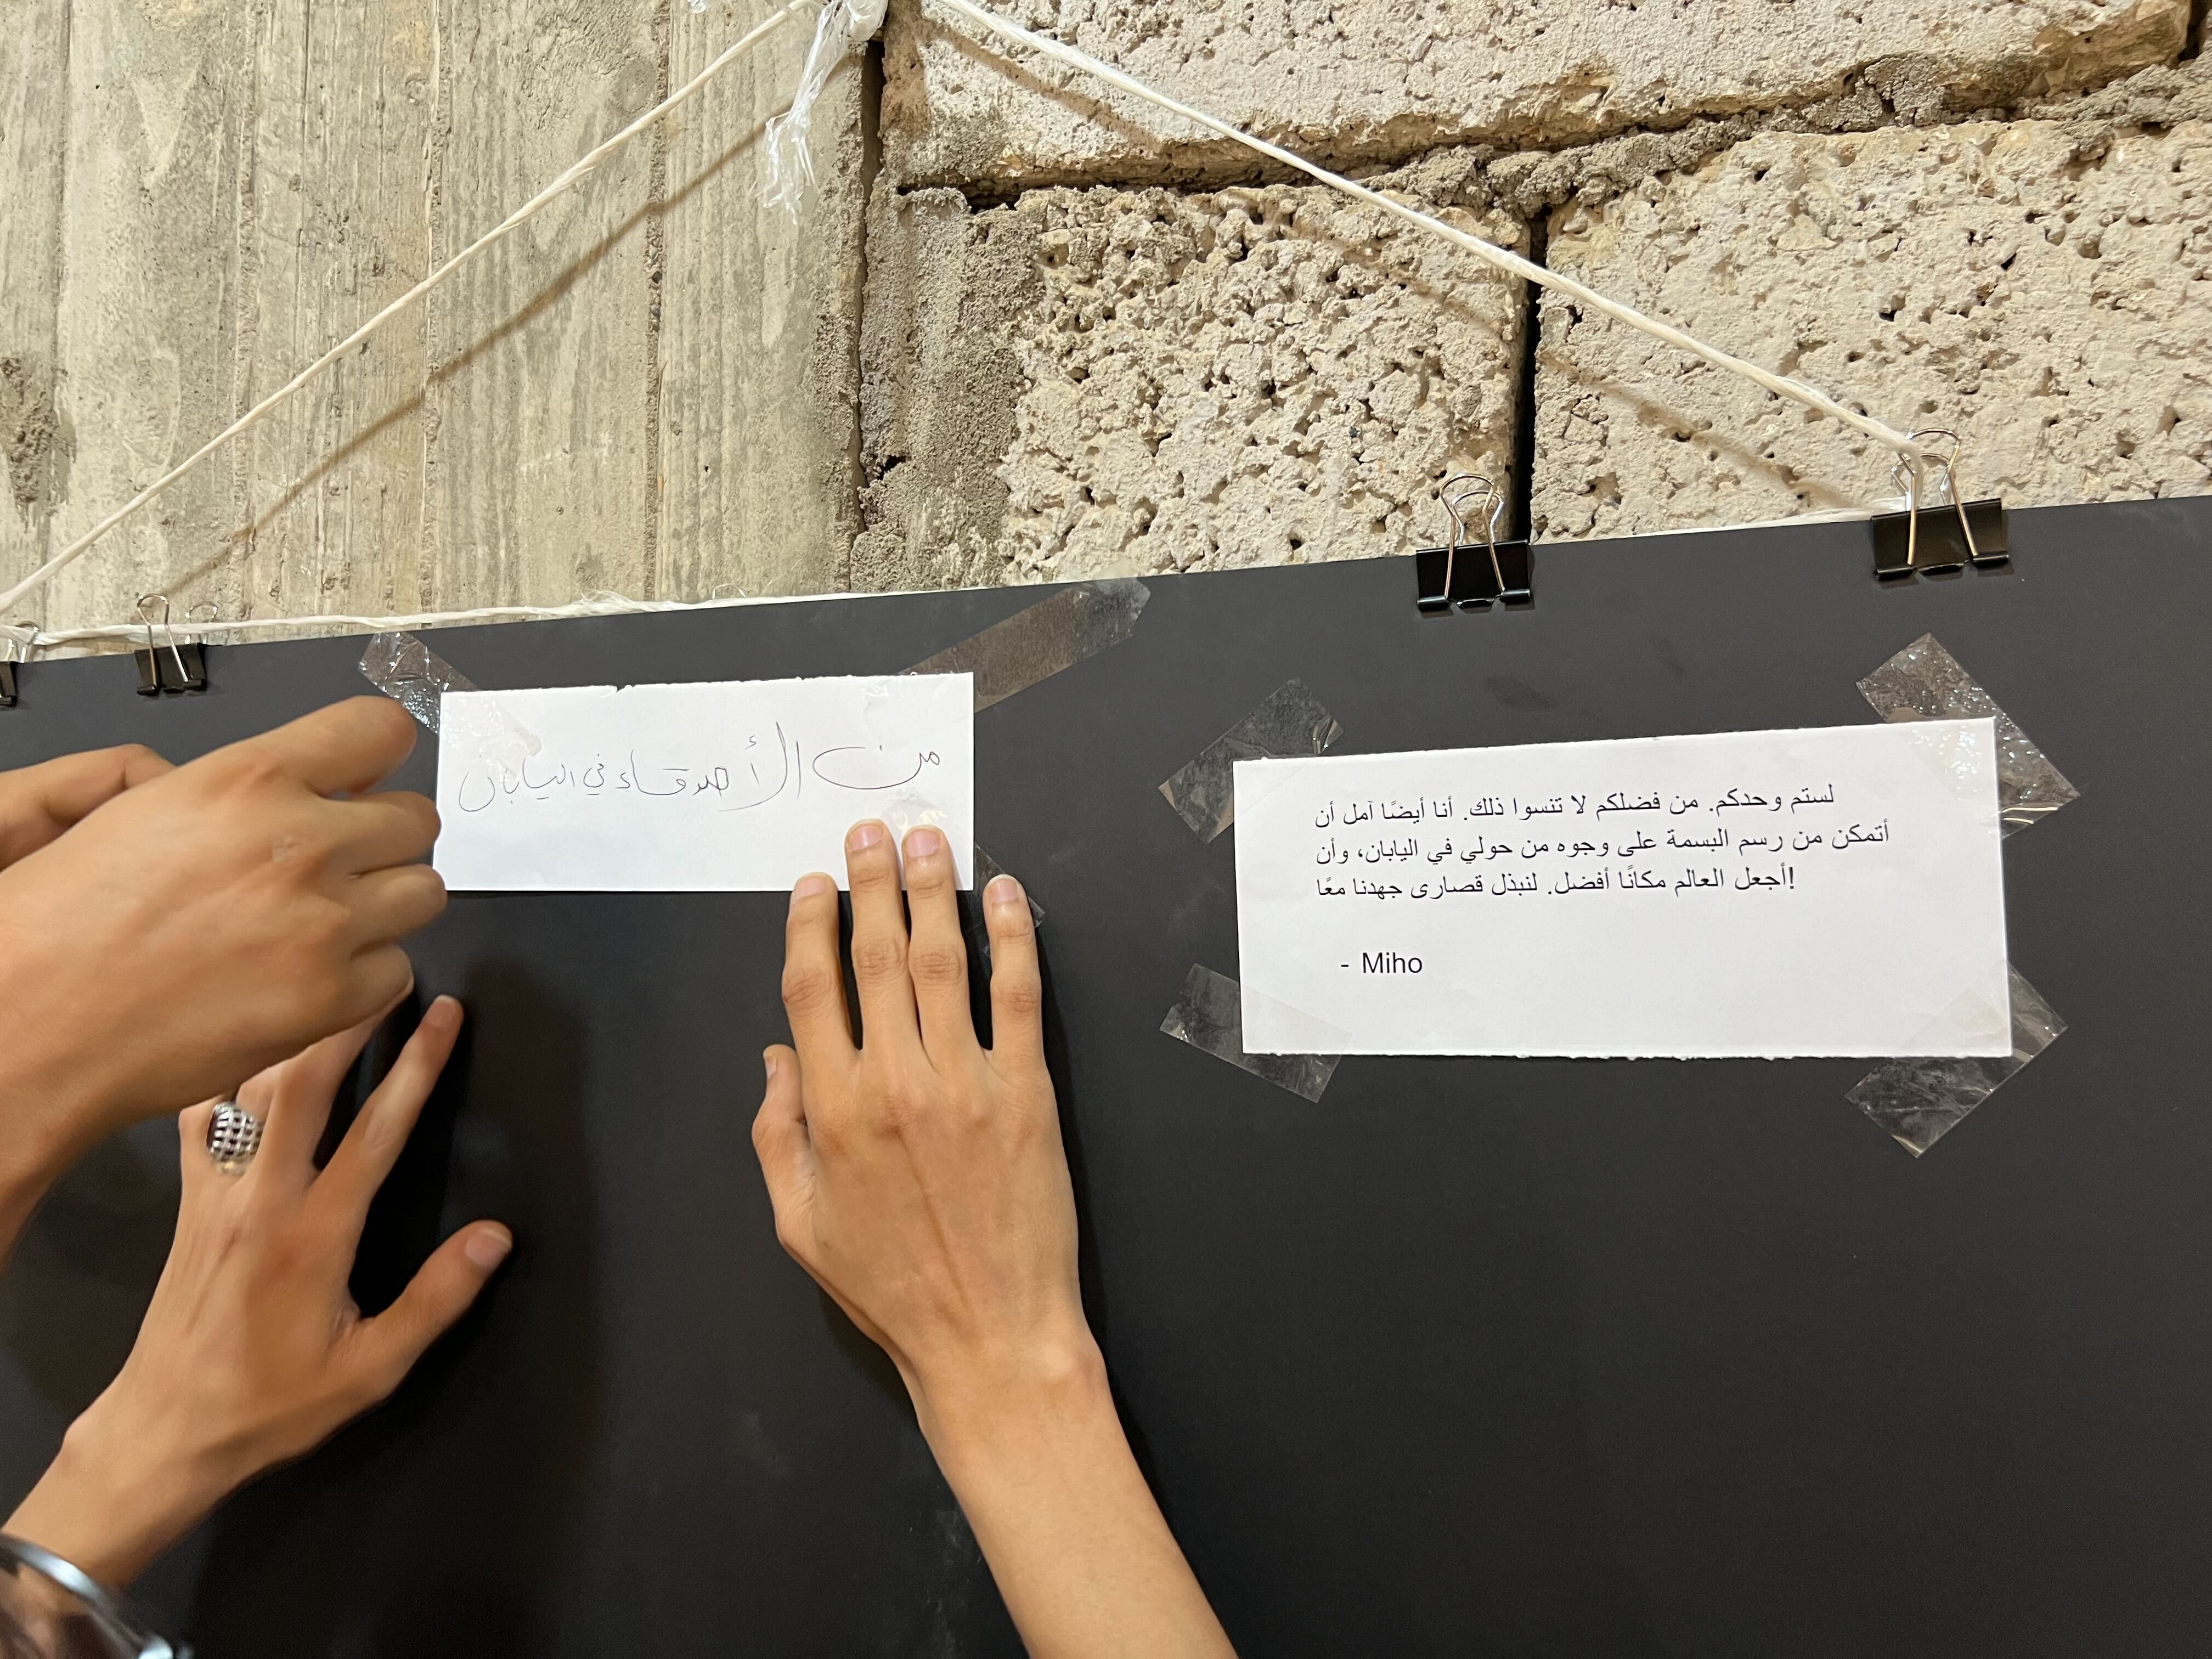 من الأصدقاء في اليابان
لستم وحدكم. من فضلكم لا تنسوا ذلك. أنا أيضًا آمل أن
أتمكن من رسم البسمة على وجوه من حولي في اليابان، وأن
أجعل العالم مكانًا أفضل. لنبذل قصارى جهدنا معًا!
- Miho